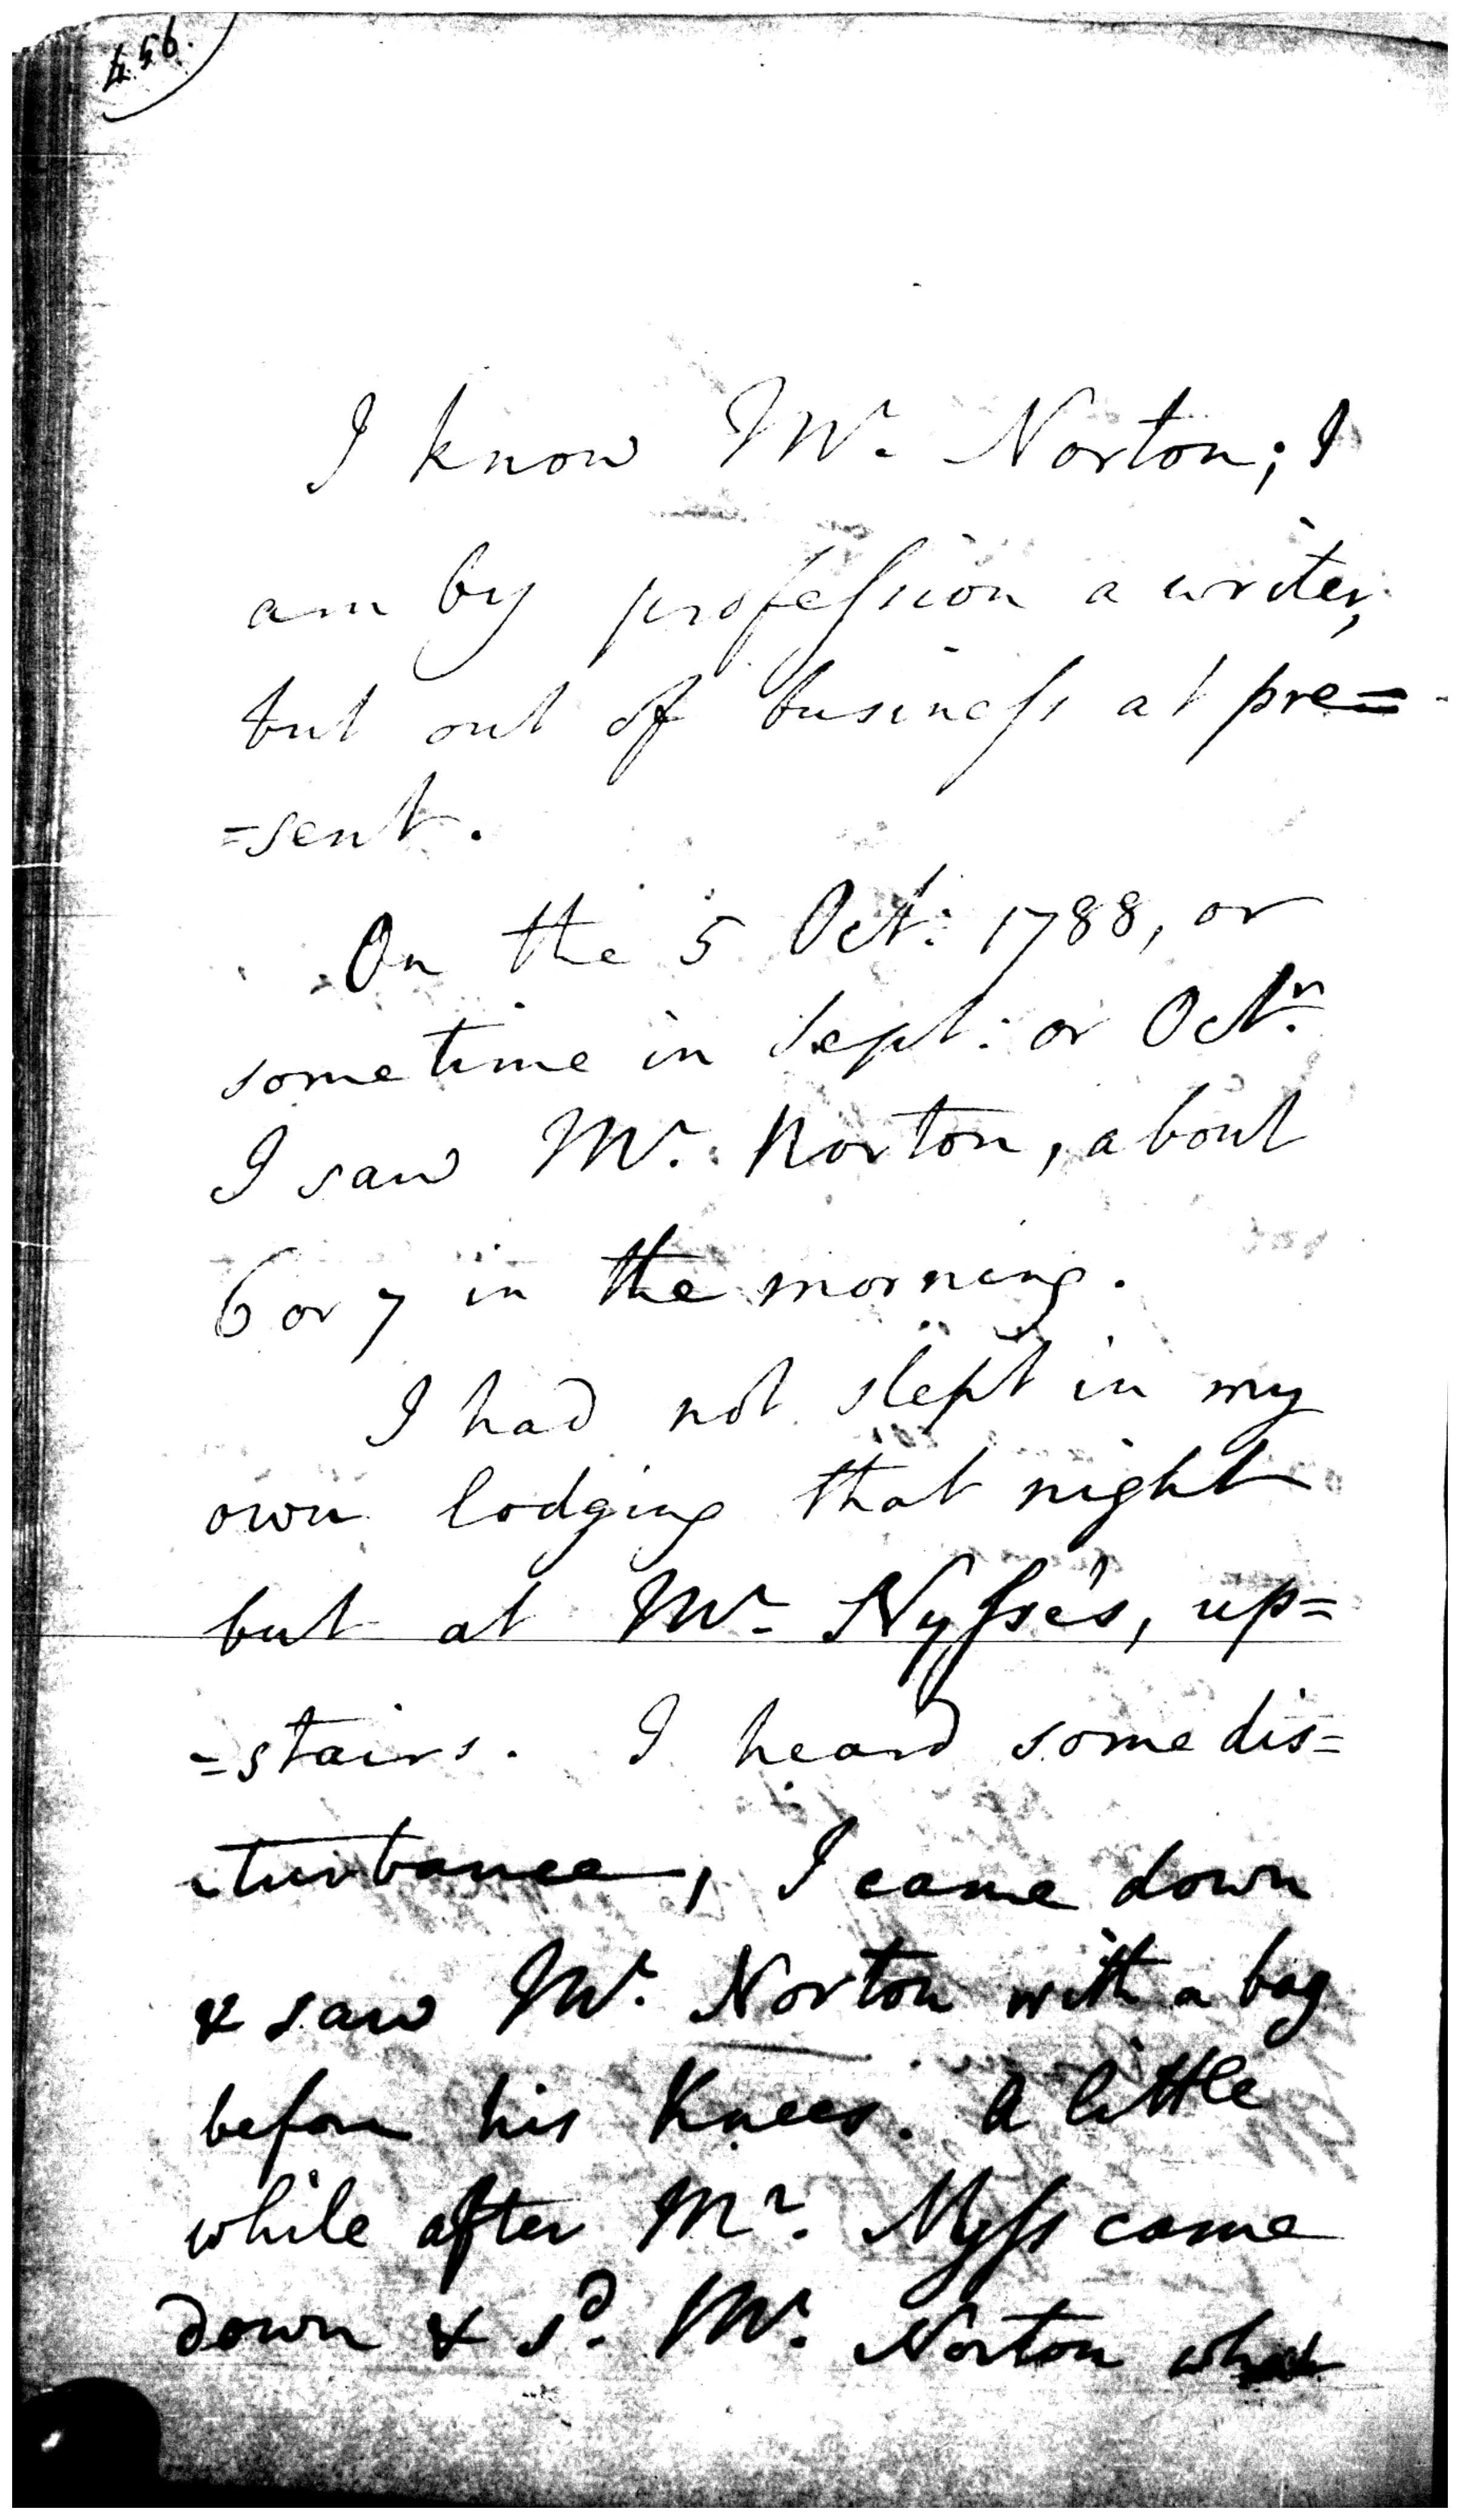 456.
I know Mr. Norton; I
am by profeſsion a writer,
but out of buſineſs at pre=
=sent.
On the 5 Oct: 1788, or
sometime in Sept: or Octr.
I saw Mr. Norton, about
6 or 7 in the morning.
I had not slept in my
own lodging that night
but at Mr. Nyſse's, up=
=stairs. I heard some dis=
=turbance, I came down
& saw Mr. Norton with a bag
before his Knees. A little
while after Mr. Nyſs came
down & sd. Mr. Norton what